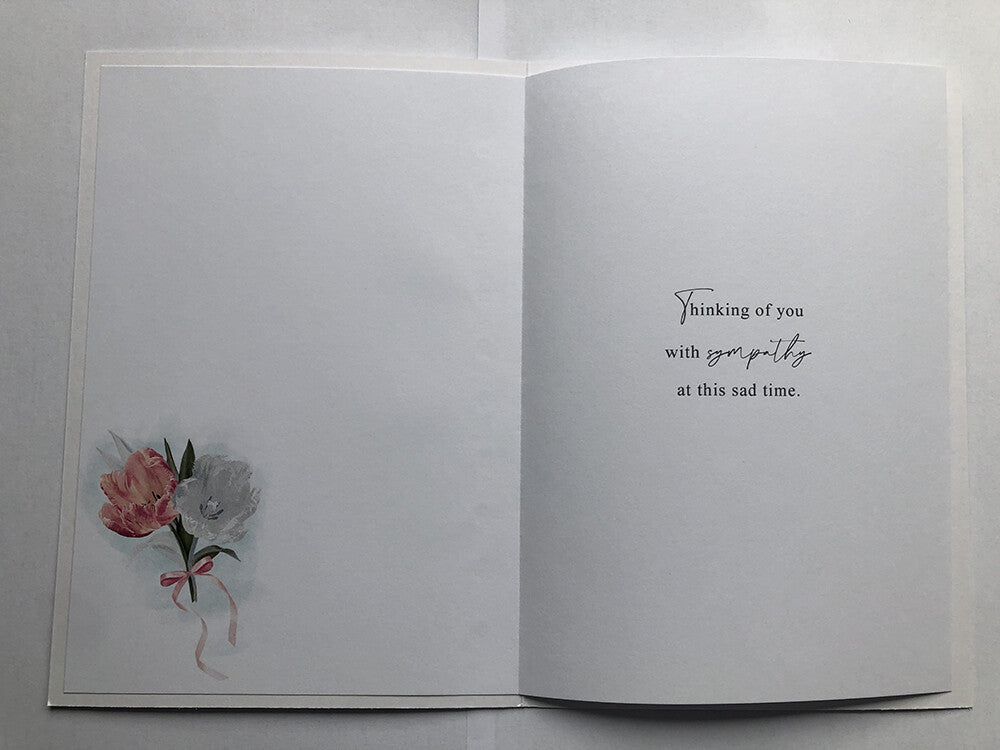 Thinking of you
with sympathy
at this sad time.